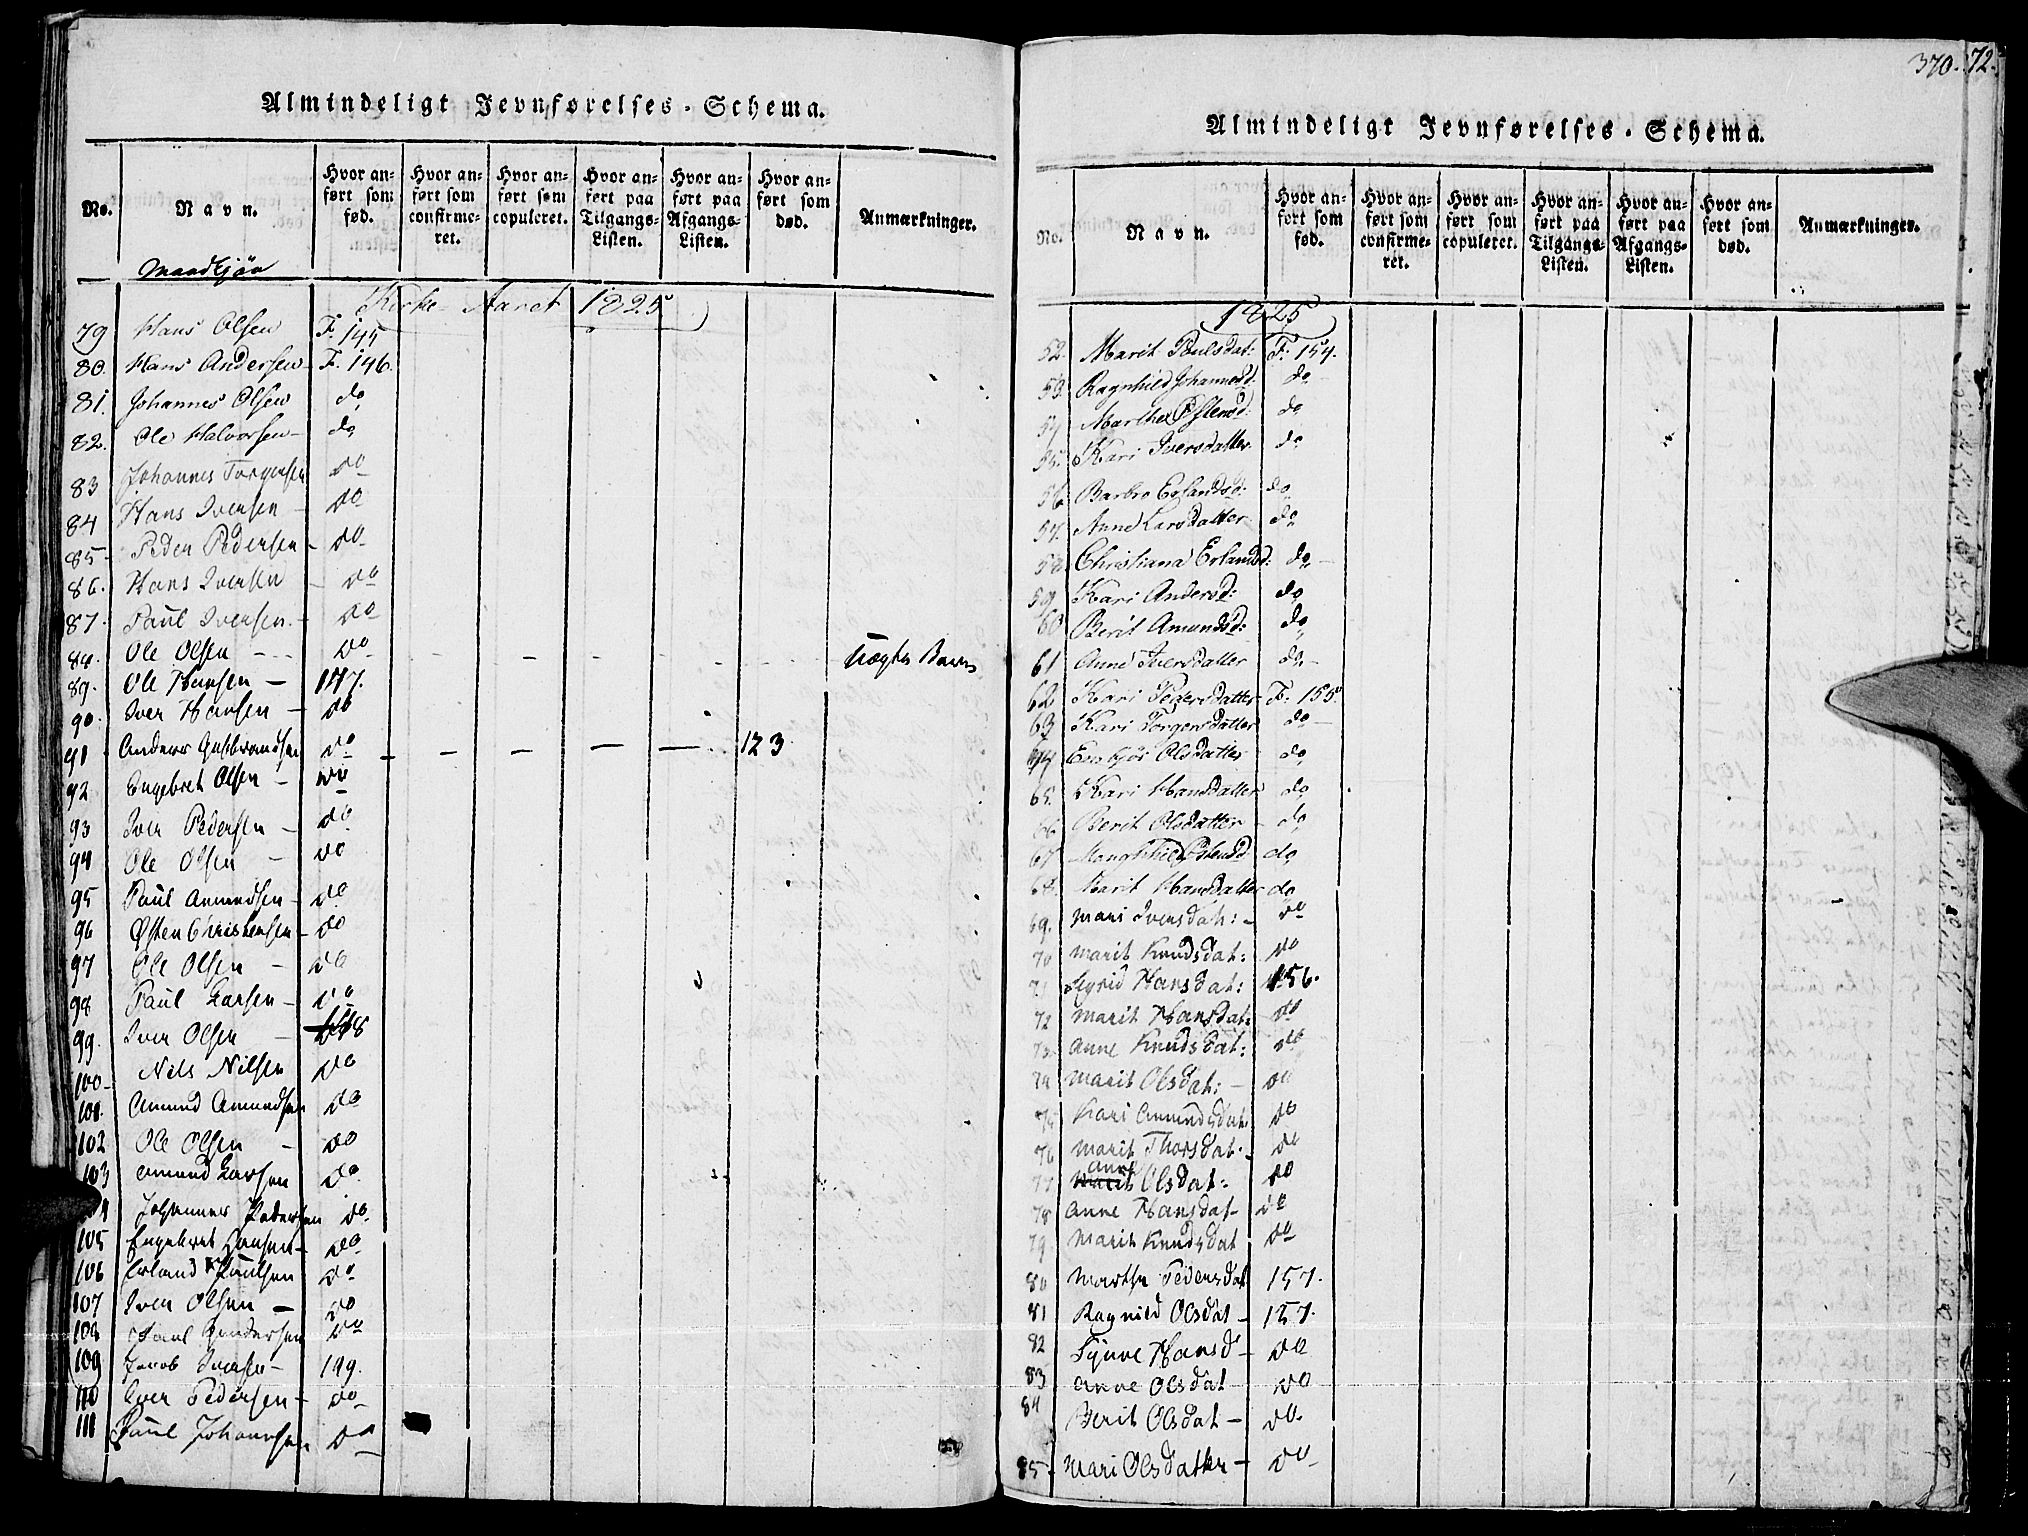 370. 72.
Almindeligt Jevnførelses-Schema.
No. Navn. Hvor anført som fød. Hvor anført som confirmeret. Hvor anført som copuleret. Hvor anført paa Tilgangs-Listen. Hvor anført paa Afgangs-Listen. Hvor anført som død. Anmærkninger.
Mandkjøn
Kirke-Aaret 1825
79 Hans Olsen F. 145
80. Hans Andersen - F. 146.
81. Johannes Olsen do
82. Ole Halvorsen - do
83 Johannes Torgersen do
84 Hans Iversen - do
85 - Peder Pedersen - do
86. Hans Iversen - do
87. Paul Iversen - do
88. Ole Olsen - - - do - - - - - - uægte Barn
89. Ole Hansen - 147.
90. Iver Hansen - do
91 Anders Gulbrandsen do - - - - - 123
92 Engebret Olsen - do
93 Iver Pedersen - do
94 Ole Olsen - do
95 Paul Amundsen - do
96 Østen Christensen - do
97 Ole Olsen - do
98 Paul Larsen - do
99. Iver Olsen - 148
100 - Nils Nilsen do
101. Amund Amundsen do
102 Ole Olsen - do
103 Amund Larsen do
104 Johannes Pedersen do
105 Engebret Hansen - do
106 Erland Paulsen do
107 Iver Olsen - do
108 Paul Gundersen do
109 Jacob Iversen - 149.
110 Iver Pedersen - do
111 Paul Johannsen do
Almindeligt Jevnførelses-Schema.
No. Navn. Hvor anført som fød. Hvor anført som confirmeret. Hvor anført som copuleret. Hvor anført paa Tilgangs-Listen. Hvor anført paa Afgangs-Listen. Hvor anført som død. Anmærkninger.
1825
52. Marit Poulsdat: F. 154.
53. Ragnhild Johannesd: do
54 Marthe Østensd: do
55. Kari Iversdatter do
56 Barbro Erlandsd: do
57. Anne Larsdatter do
58 Christiana Erlandsd: do -
59 Kari Andersd: do
60 Berit Amundsd: do
61 Anne Iversdatter do -
62 Kari Pedersdatter F. 155.
63 Kari Torgersdatter do -
64 Embjør Olsdatter do
65. Kari Hansdatter do
66 Berit Olsdatter - do
67 Østensd: do
68. Marit Hansdatter do
69. Mari Iversdat: - do
70 Marit Knudsdat: do
71 Sigrid Hansdat: 156.
72 Marit Hansdat: do
73 Anne Knudsdat: do
74 Marit Olsdat: - do
75 Kari Amundsdat do
76 Marit Thorsdat: - do
77 Anne Olsdat: do
78 Anne Hansdat - do
79. Marit Knudsdat do
80 Marthe Pedersdat 157.
81 Ragnild Olsdat - 157.
82 Synve Hansd - do
83 Anne Olsdat - do
84 Berit Olsdat - do.
85 - Mari Olsdatter - do